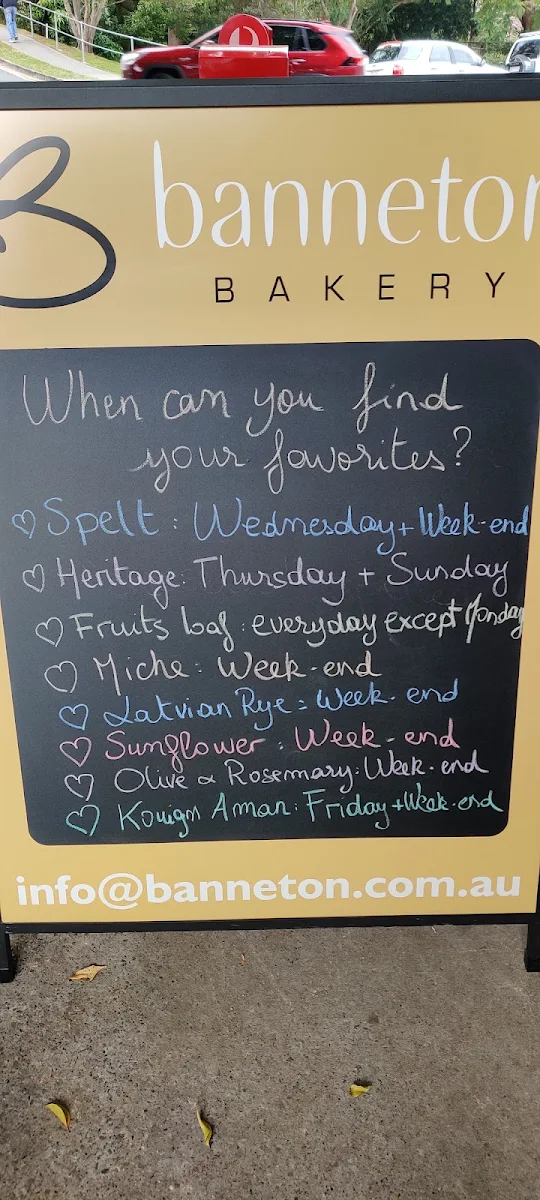 banneton
BAKERY
When can you find
your favorites?
Spelt : Wednesday + Week-end
Heritage: Thursday + Sunday
Fruits loaf : everyday except Monday
Miche : Week-end
Latvian Rye : Week-end
Sunflower : Week-end
Olive & Rosemary: Week-end
Kouign Aman: Friday + Week-end
info@banneton.com.au